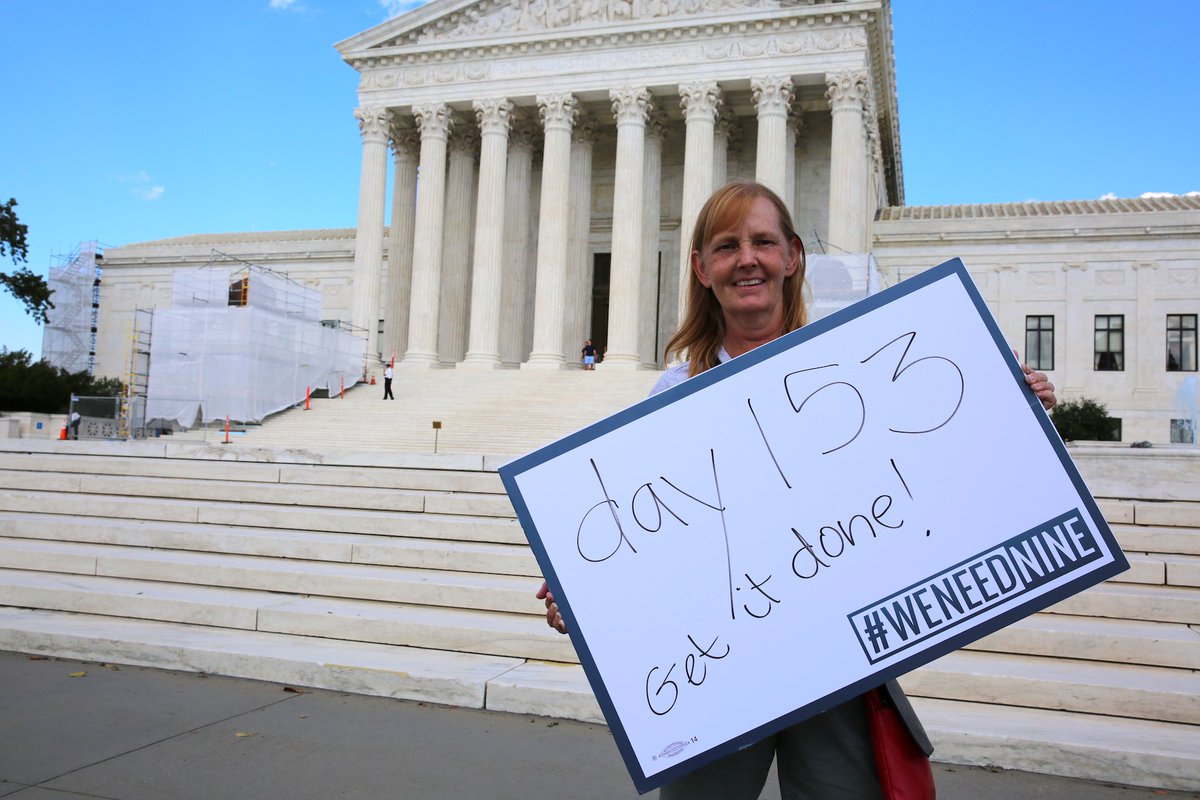 day 153
Get it done!
#WENEEDNINE
14